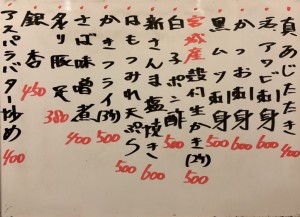 真あじたたき 400
活アワビ刺身 800
かつお刺身 600
黒ムツ刺身 600
宮城産 殻付生かき(2ヶ) 500
白子ポン酢 500
新さんま塩焼き 600
はもつれ天ぷら 500
かきフライ(3ヶ) 500
さば味噌煮 400
炙り豚足 380
銀杏 450
アスパラバター炒め 400